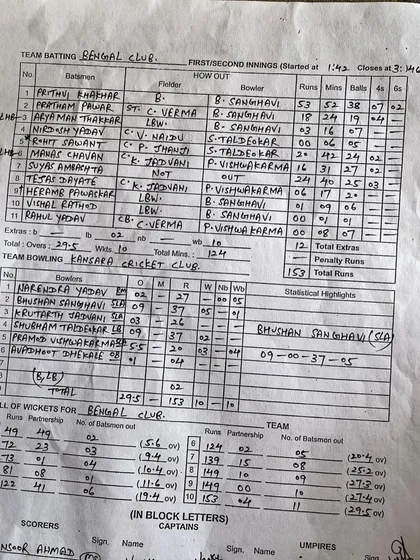 TEAM BATTING BENGAL CLUB. FIRST/SECOND INNINGS (Started at 1:42 Closes at 3:46
No. Batsmen HOW OUT Fielder Bowler Runs Mins Balls 4s 6s
1 PRITHVI KHAKHAR B. B. SANGHAVI 53 52 38 07 02
2 PRATHAM PAWAR ST. C. VERMA B. SANGHAVI 18 24 19 04 —
LHB 3 ARYAMAN THAKKAR LBW. B. SANGHAVI 03 16 07 — —
4 NIRDOSH YADAV C. V. NAIDU S. TALDEOKAR 00 06 05 — —
5 ROHIT SAWANT C. P. JHANJI S. TALDEOKAR 20 42 24 02 —
LHB 6 MANAS CHAVAN C. K. JADVANI P. VISHWAKARMA 16 31 27 02 —
7 SUYAS AMBASHTA NOT OUT 24 40 25 03 —
8 TEJAS DAYATE C. K. JADVANI P. VISHWAKARMA 06 17 20 — —
9 HERAMB PAWASKAR LBW. B. SANGHAVI 01 09 06 — —
10 VISHAL RATHOD LBW. B. SANGHAVI 00 01 01 — —
11 RAHUL YADAV CB. C. VERMA P. VISHWAKARMA 00 08 07 — —
Extras : b — lb 02 nb — wb 10 12 Total Extras
Total : Overs : 29.5 Wkts 10 Total Mins. : 124 — Penalty Runs
TEAM BOWLING KANSARA CRICKET CLUB. 153 Total Runs
Bowlers O M R W Nb Wb Statistical Highlights
1 NARENDRA YADAV RM 02 — 27 — 00 05
2 BHUSHAN SANGHAVI SLA 09 — 37 05 — 01
3 KRUTARTH JADVANI SLA 03 — 26 — — —
4 SHUBHAM TALDEOKAR LB 09 — 37 02 — —
5 PRAMOD VISHWAKARMA 5.5 — 20 03 — 04
6 AVADHOOT DHEKALE OB 01 — 04 — — —
BHUSHAN SANGHAVI (SLA)
09-00-37-05
(B, LB) 02
TOTAL 29.5 — 153 10 — 10
LL OF WICKETS FOR BENGAL CLUB. TEAM
Runs Partnership No. of Batsmen out Runs Partnership No. of Batsmen out
49 49 02 (5.6 ov) 6 124 02 05 (20.4 ov)
72 23 03 (9.4 ov) 7 139 15 08 (25.2 ov)
73 01 04 (10.4 ov) 8 149 10 09 (27.3 ov)
81 08 01 (11.6 ov) 9 149 00 10 (27.4 ov)
122 41 06 (19.4 ov) 10 153 04 11 (29.5 ov)
(IN BLOCK LETTERS)
SCORERS CAPTAINS UMPIRES
Sign. Name Sign. Name
NSOOR AHMAD